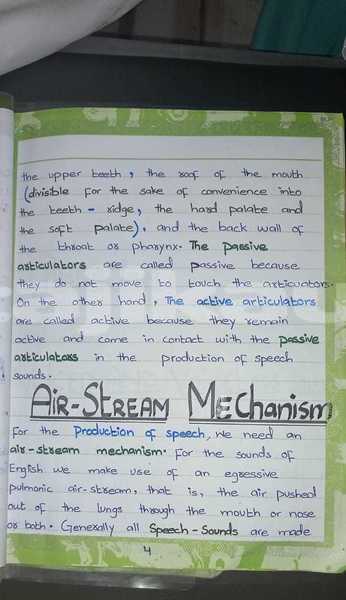 the upper teeth, the roof of the mouth
(divisible for the sake of convenience into
the teeth - ridge, the hard palate and
the soft palate), and the back wall of
the throat or pharynx. The passive
articulators are called passive because
they do not move to touch the articuators.
On the other hand, The active articulators
are called active because they remain
active and come in contact with the passive
articulators in the production of speech
sounds.
AIR-STREAM MEChanism
For the Production of speech, we need an
air-stream mechanism. For the sounds of
English we make use of an egressive
pulmonic air-stream, that is, the air pushed
out of the lungs through the mouth or nose
or both. Generally all Speech-Sounds are made
4